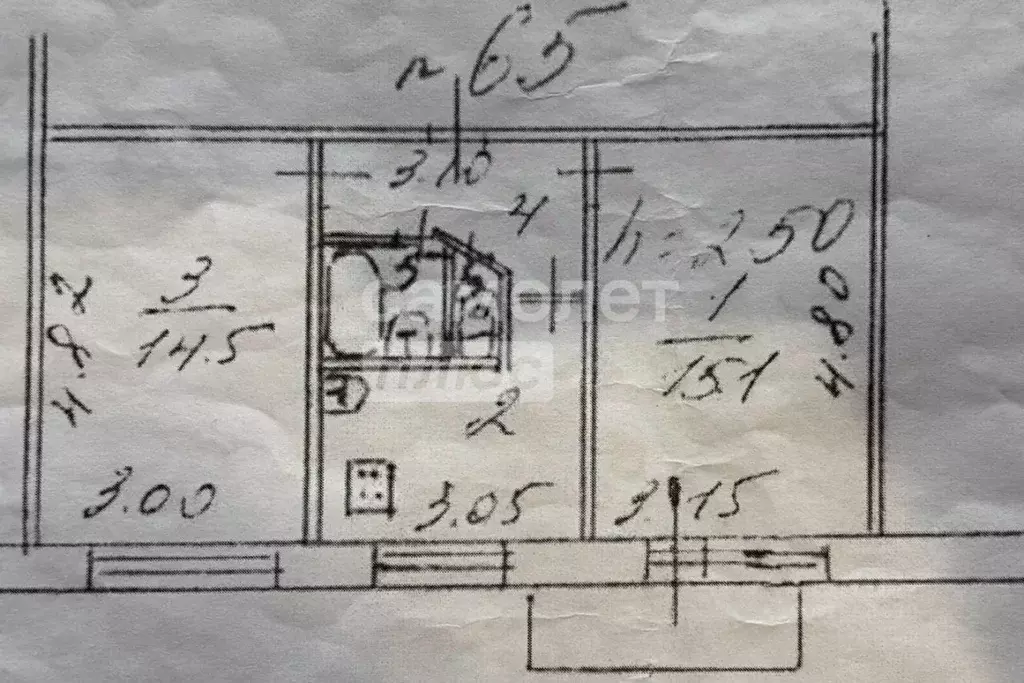 n 65
3.10
4
h=2.50
3
14.5
4.82
5
1
15.1
4.80
2
3.00
3.05
3.15
самолет
плюс